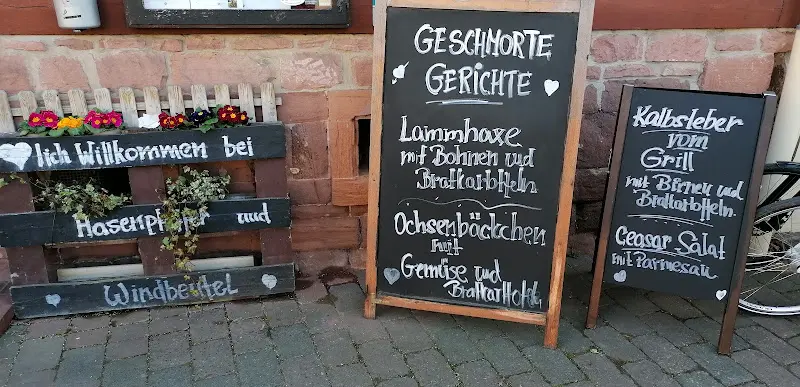 lich Willkommen bei
Hasenpfeffer und
Windbeutel
GESCHMORTE
GERICHTE
Lammhaxe
mit Bohnen und
Bratkartoffeln
Ochsenbäckchen
mit
Gemüse und
Bratkartoffeln
Kalbsleber
vom
Grill
mit Birnen und
Bratkartoffeln
Ceasar Salat
mit Parmesan